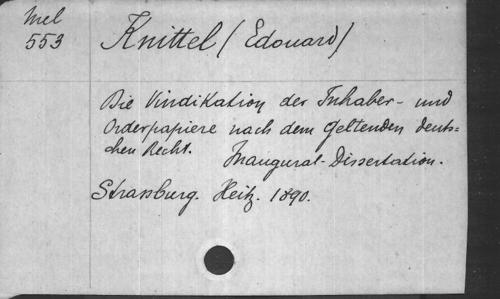 Mel
553
Knittel (Edouard)
Die Vindikation der Inhaber- und
Orderpapiere nach dem geltenden deuts=
chen Recht. Inaugural-Dissertation.
Strassburg. Heitz. 1890.